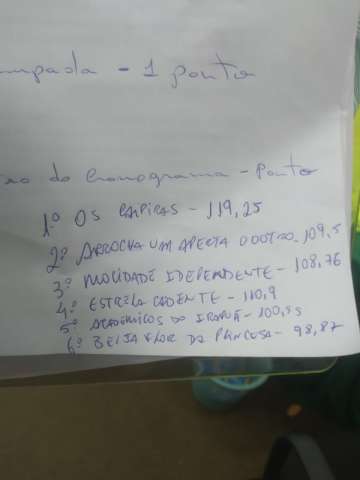 mpada - 1 ponto
ao do Cronograma - Ponto
1º OS CAIPIRAS - 119,25
2º ARROCHA UM APERTA O OUTRO - 109,5
3º MOCIDADE IDEPENDENTE - 108,76
4º ESTRELA CADENTE - 110,9
5º ACADÊMICOS DO - 100,55
6º BEIJA FLOR DA PRINCESA - 98,87